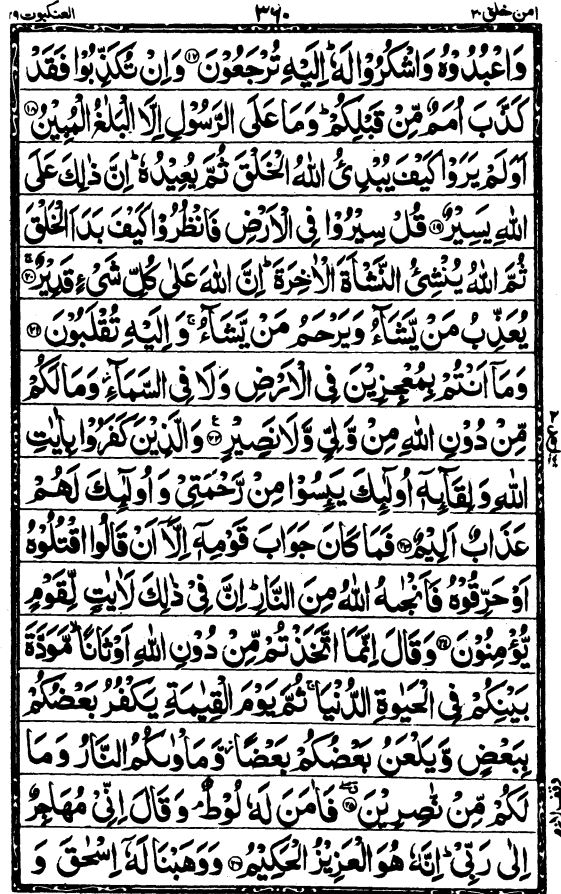 امن خلق ۲۰ ۳۶۰ العنكبوت ۲۹
وَاعْبُدُوْهُ وَاشْكُرُوْا لَهٗ ؕ اِلَيْهِ تُرْجَعُوْنَ ۝۱۷ وَاِنْ تُكَذِّبُوْا فَقَدْ
كَذَّبَ اُمَمٌ مِّنْ قَبْلِكُمْ ؕ وَمَا عَلَى الرَّسُوْلِ اِلَّا الْبَلٰغُ الْمُبِيْنُ ۝۱۸
اَوَلَمْ يَرَوْا كَيْفَ يُبْدِئُ اللّٰهُ الْخَلْقَ ثُمَّ يُعِيْدُهٗ ؕ اِنَّ ذٰلِكَ عَلَى
اللّٰهِ يَسِيْرٌ ۝۱۹ قُلْ سِيْرُوْا فِى الْاَرْضِ فَانْظُرُوْا كَيْفَ بَدَاَ الْخَلْقَ
ثُمَّ اللّٰهُ يُنْشِئُ النَّشْاَةَ الْاٰخِرَةَ ؕ اِنَّ اللّٰهَ عَلٰى كُلِّ شَىْءٍ قَدِيْرٌ ۝۲۰
يُعَذِّبُ مَنْ يَّشَآءُ وَيَرْحَمُ مَنْ يَّشَآءُ ۚ وَاِلَيْهِ تُقْلَبُوْنَ ۝۲۱
وَمَاۤ اَنْتُمْ بِمُعْجِزِيْنَ فِى الْاَرْضِ وَلَا فِى السَّمَآءِ ؗ وَمَا لَكُمْ
مِّنْ دُوْنِ اللّٰهِ مِنْ وَّلِىٍّ وَّلَا نَصِيْرٍ ۝۲۲ وَالَّذِيْنَ كَفَرُوْا بِاٰيٰتِ
اللّٰهِ وَلِقَآئِهٖۤ اُولٰٓئِكَ يَئِسُوْا مِنْ رَّحْمَتِىْ وَاُولٰٓئِكَ لَهُمْ
عَذَابٌ اَلِيْمٌ ۝۲۳ فَمَا كَانَ جَوَابَ قَوْمِهٖۤ اِلَّاۤ اَنْ قَالُوا اقْتُلُوْهُ
اَوْ حَرِّقُوْهُ فَاَنْجٰىهُ اللّٰهُ مِنَ النَّارِ ؕ اِنَّ فِىْ ذٰلِكَ لَاٰيٰتٍ لِّقَوْمٍ
يُّؤْمِنُوْنَ ۝۲۴ وَقَالَ اِنَّمَا اتَّخَذْتُمْ مِّنْ دُوْنِ اللّٰهِ اَوْثَانًا ۙ مَّوَدَّةَ
بَيْنِكُمْ فِى الْحَيٰوةِ الدُّنْيَا ۚ ثُمَّ يَوْمَ الْقِيٰمَةِ يَكْفُرُ بَعْضُكُمْ
بِبَعْضٍ وَّيَلْعَنُ بَعْضُكُمْ بَعْضًا ؗ وَّمَاْوٰىكُمُ النَّارُ وَمَا
لَكُمْ مِّنْ نّٰصِرِيْنَ ۝۲۵ فَاٰمَنَ لَهٗ لُوْطٌ ۘ وَقَالَ اِنِّىْ مُهَاجِرٌ
اِلٰى رَبِّىْ ؕ اِنَّهٗ هُوَ الْعَزِيْزُ الْحَكِيْمُ ۝۲۶ وَوَهَبْنَا لَهٗۤ اِسْحٰقَ وَ